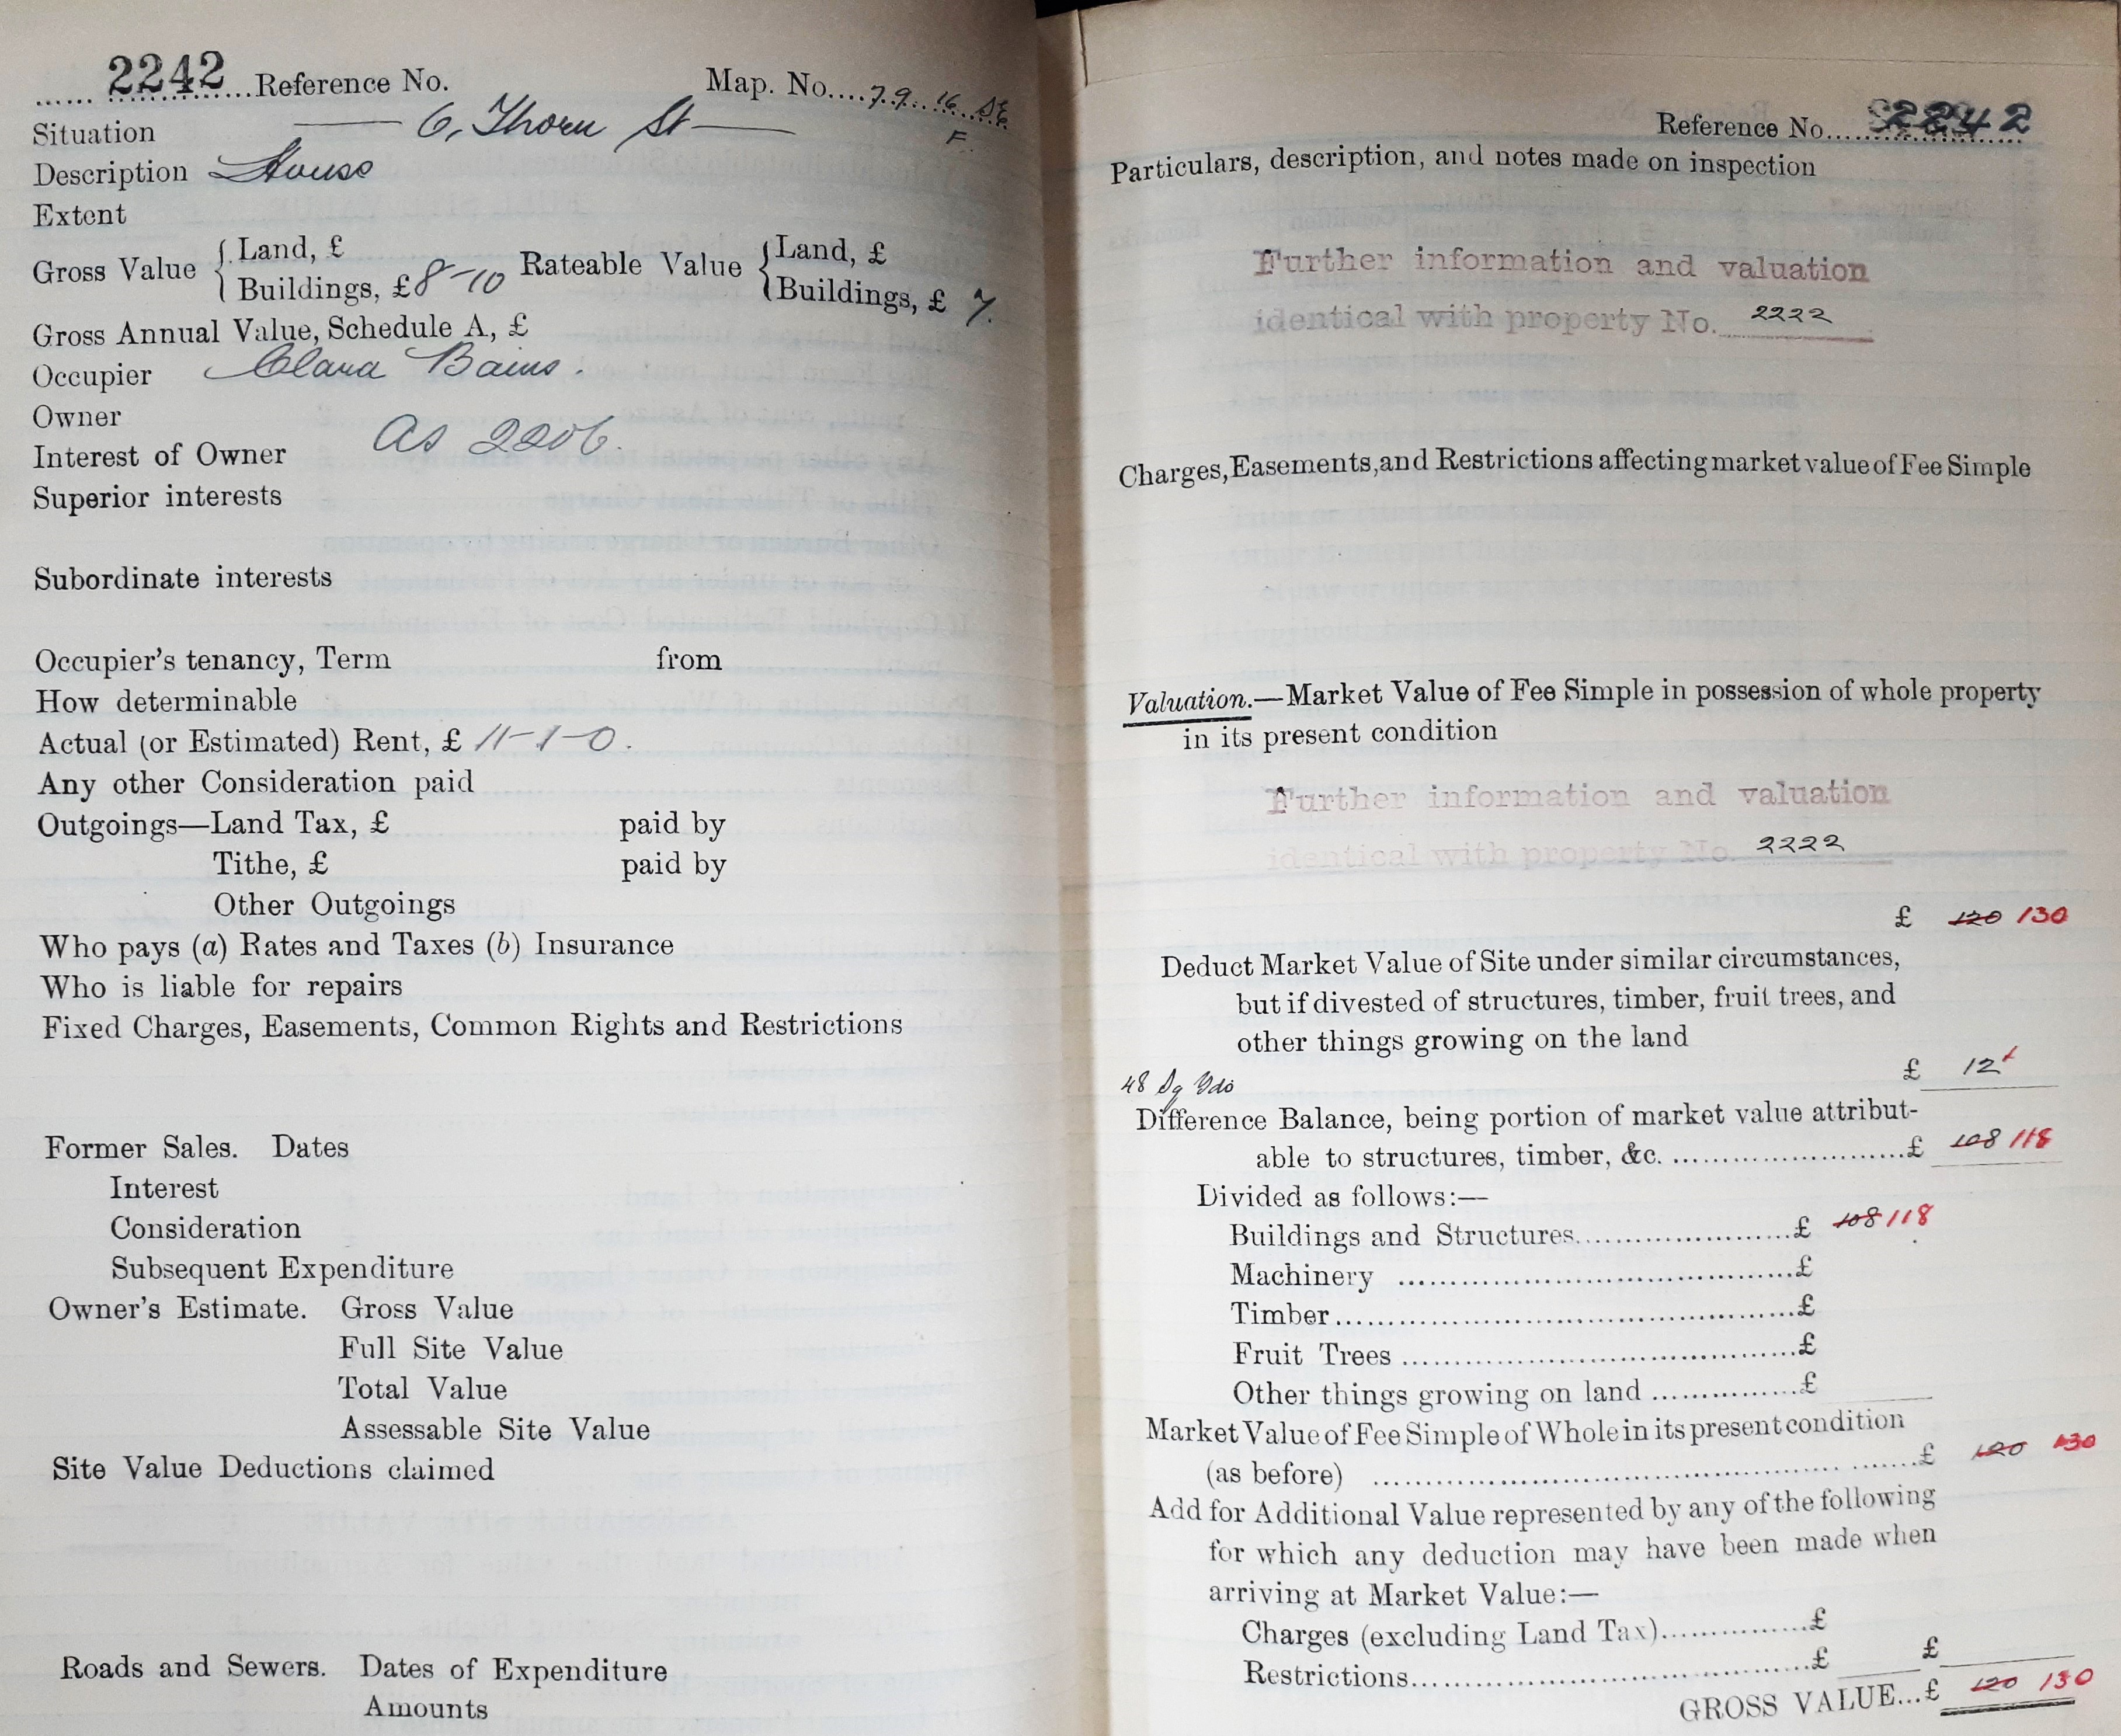 2242 Reference No. Map. No. 79. 16. SE
F.
Situation — 6, Thorn St —
Description House
Extent
Gross Value { Land, £ Rateable Value { Land, £
Buildings, £ 8-10 Buildings, £ 7.
Gross Annual Value, Schedule A, £
Occupier Clara Bains.
Owner
As 2206.
Interest of Owner
Superior interests
Subordinate interests
Occupier's tenancy, Term from
How determinable
Actual (or Estimated) Rent, £ 11-1-0.
Any other Consideration paid
Outgoings—Land Tax, £ paid by
Tithe, £ paid by
Other Outgoings
Who pays (a) Rates and Taxes (b) Insurance
Who is liable for repairs
Fixed Charges, Easements, Common Rights and Restrictions
Former Sales. Dates
Interest
Consideration
Subsequent Expenditure
Owner's Estimate. Gross Value
Full Site Value
Total Value
Assessable Site Value
Site Value Deductions claimed
Roads and Sewers. Dates of Expenditure
Amounts
Reference No. 2242
Particulars, description, and notes made on inspection
Further information and valuation
identical with property No. 2222
Charges, Easements, and Restrictions affecting market value of Fee Simple
Valuation.—Market Value of Fee Simple in possession of whole property
in its present condition
Further information and valuation
identical with property No. 2222
£ 120 130
Deduct Market Value of Site under similar circumstances,
but if divested of structures, timber, fruit trees, and
other things growing on the land
48 Sq Yds £ 12
Difference Balance, being portion of market value attribut-
able to structures, timber, &c. £ 108 118
Divided as follows:—
Buildings and Structures £ 108 118
Machinery £
Timber £
Fruit Trees £
Other things growing on land £
Market Value of Fee Simple of Whole in its present condition
(as before) £ 120 130
Add for Additional Value represented by any of the following
for which any deduction may have been made when
arriving at Market Value:—
Charges (excluding Land Tax) £
Restrictions £ £
GROSS VALUE...£ 120 130